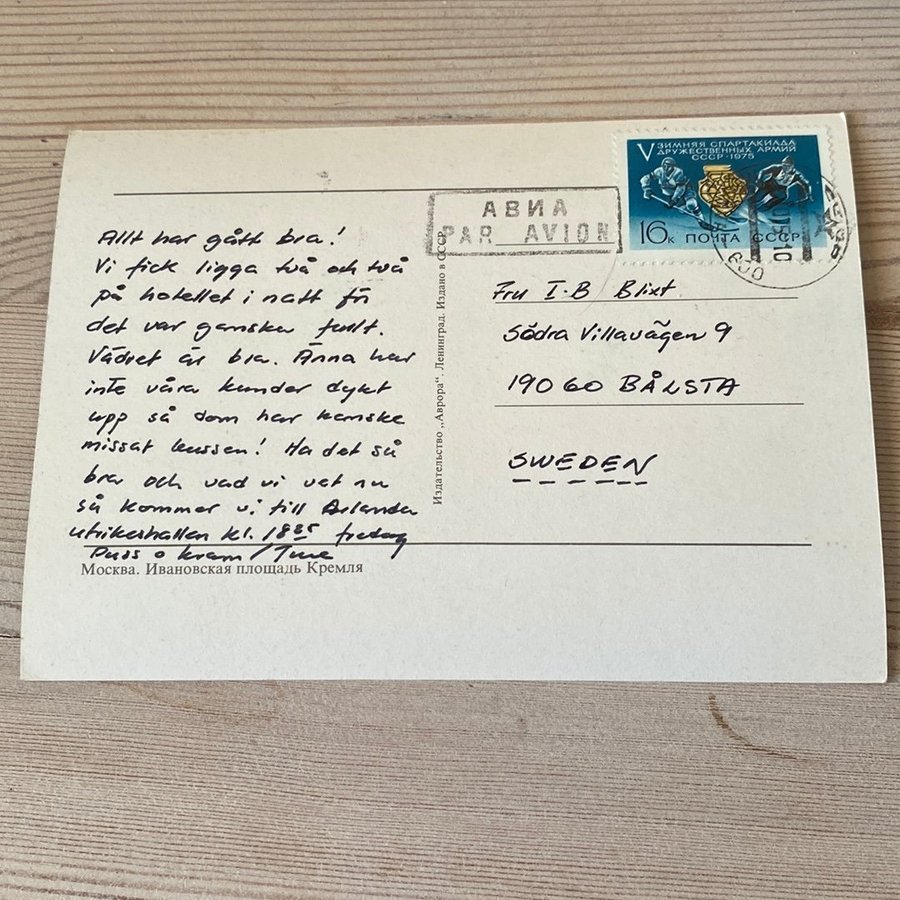 V ЗИМНЯЯ СПАРТАКИАДА
ДРУЖЕСТВЕННЫХ АРМИЙ
СССР·1975
16к ПОЧТА СССР
АВИА
PAR AVION
Allt har gått bra!
Vi fick ligga två och två
på hotellet i natt för
det var ganska fullt.
Vädret är bra. Änna har
inte våra kunder dykt
upp så dom har kanske
missat bussen! Ha det så
bra och vad vi vet nu
så kommer vi till Arlanda
utrikeshallen kl. 18 35 fredag
Puss o kram/
Москва. Ивановская площадь Кремля
Издательство „Аврора“. Ленинград. Издано в СССР
Fru I-B Blixt
Södra Villavägen 9
190 60 BÅLSTA
SWEDEN